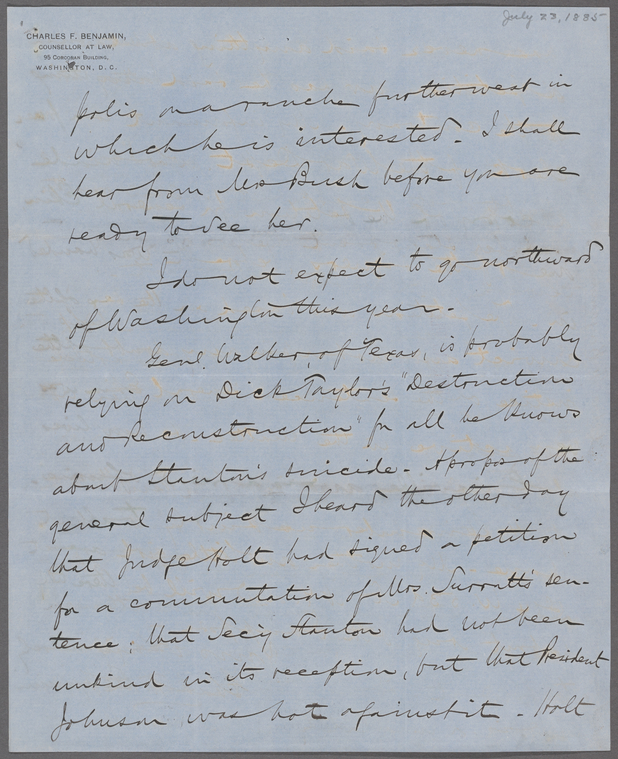 July 23, 1885
CHARLES F. BENJAMIN,
COUNSELLOR AT LAW,
95 CORCORAN BUILDING,
WASHINGTON, D. C.
polis on a ranche further west in
which he is interested. I shall
hear from Mrs Bush before you are
ready to see her.
I do not expect to go northward
of Washington this year.
Genl. Walker, of Texas, is probably
relying on Dick Taylor's "Destruction
and Reconstruction" for all he knows
about Stanton's suicide. Apropos of the
general subject I heard the other day
that Judge Holt had signed a petition
for a commutation of Mrs. Surratt's sen-
tence; that Sec'y Stanton had not been
unkind in its reception, but that President
Johnson was hot against it. Holt